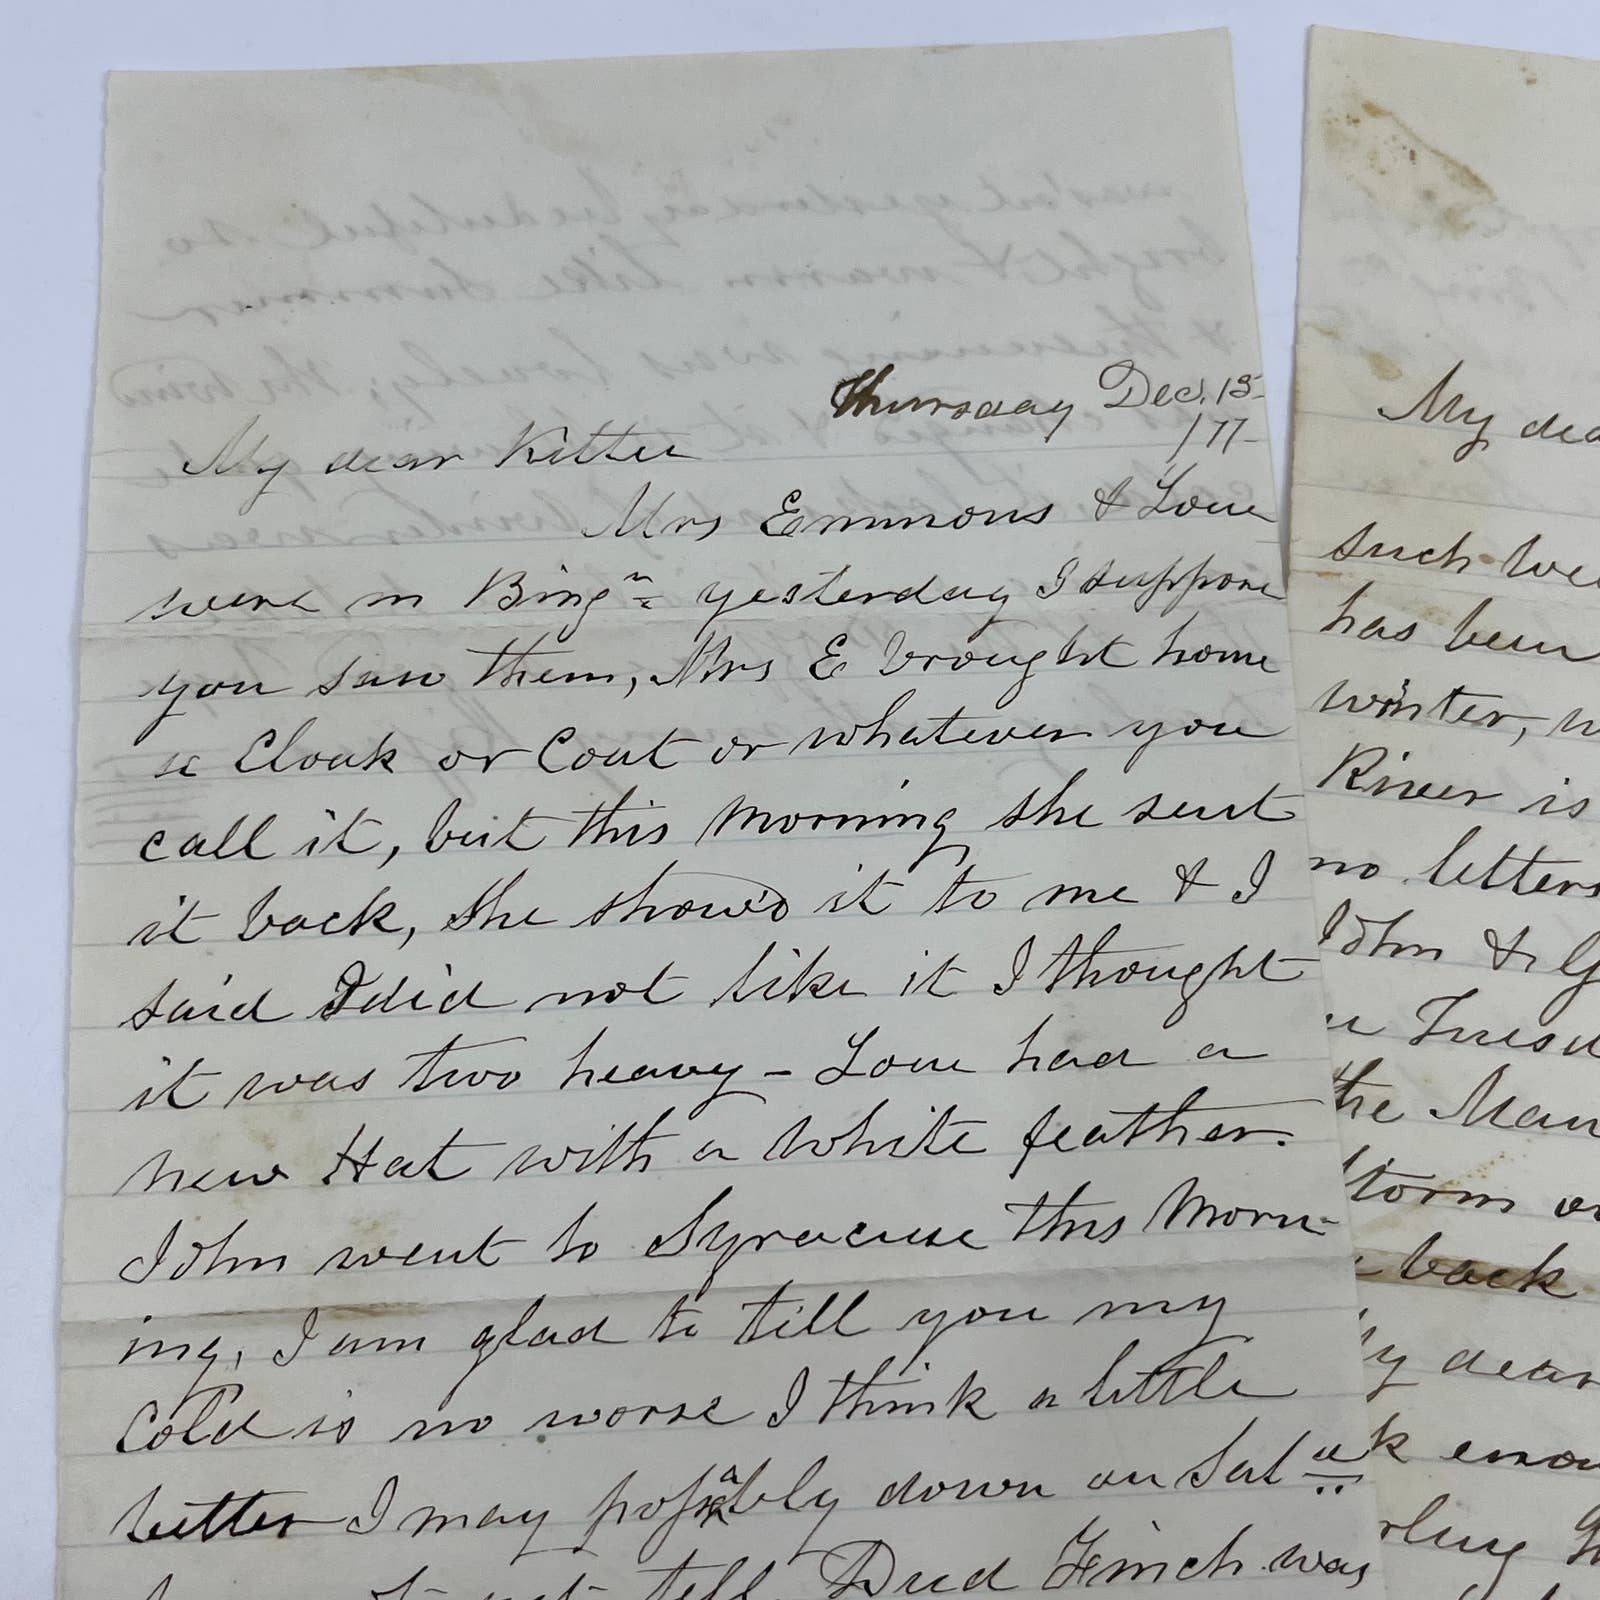 Thursday Dec. 13
/77
My dear Kittie
Mrs Emmons & Lou
were in Bingn yesterday I suppose
you saw them, Mrs E brought home
a Cloak or Coat or whatever you
call it, but this morning she sent
it back, she show'd it to me & I
said I did not like it I thought
it was two heavy - Lou had a
new Hat with a white feather.
John went to Syracuse this Morn-
ing, I am glad to till you my
Cold is no worse I think a little
better I may down on Sat
not tell. Dud Finch was
My dea
such we
has been
winter, w
River is
no letters
John & G
Tuesd
the Man
Storm
back
dear
k enou